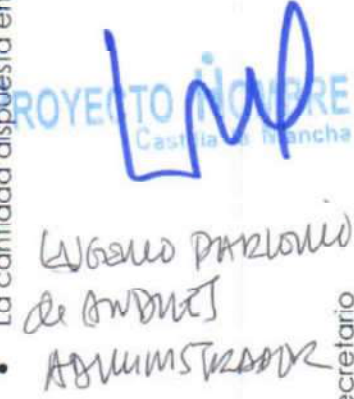 La cantidad dispuesta en
PROYECTO HOMBRE
Castilla la Mancha
EUGENIO
de ANDRÉS
ADMINISTRADOR
ecretario